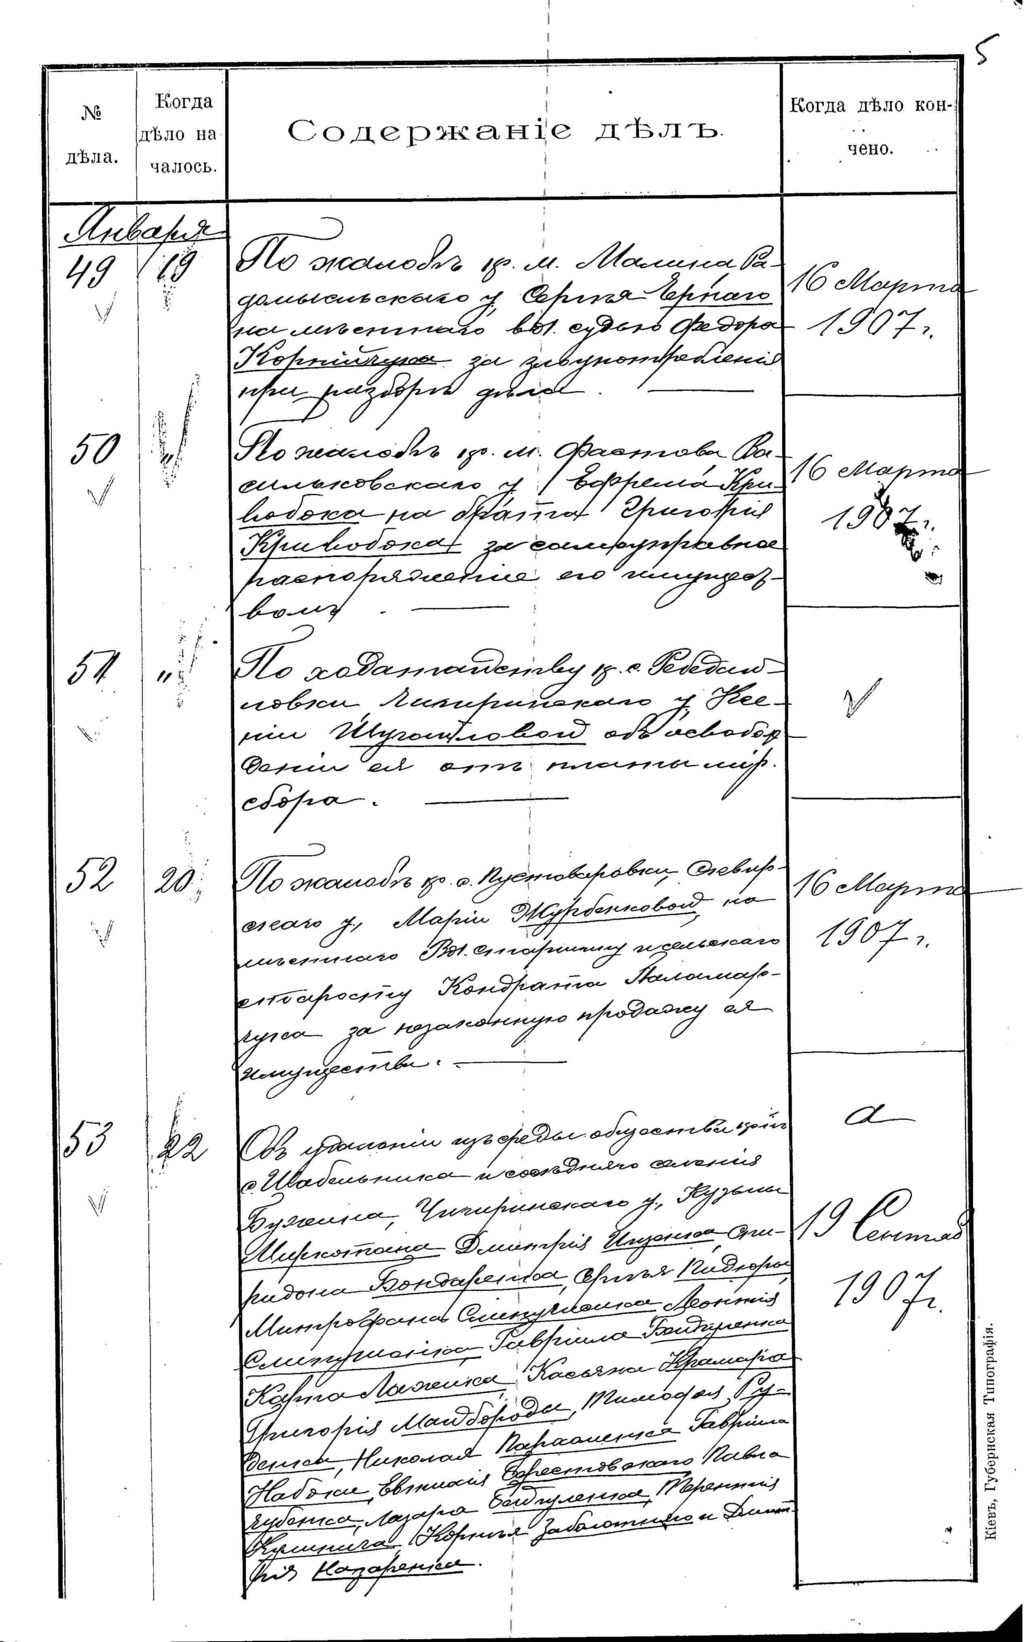 5
№
дѣла.
Когда
дѣло на
чалось.
Содержаніе дѣлъ.
Когда дѣло кон-
чено.
Января
49
19
По жалобѣ кр. м. Малина Ра-
домысльскаго у. Сергѣя
на мѣстнаго вол. судью Федора
Корнійчука за злоупотребленія
при разборѣ дѣла.
16 Марта
1907 г.
50
"
По жалобѣ кр. м. Фастова Ва-
сильковскаго у. Ефрема Кри-
вобока на брата Григорія
Кривобока за самоуправное
распоряженіе его имущест-
вомъ.
16 Марта
1907 г.
51
"
По ходатайству кр. с.
новки Чигиринскаго у. Ксе-
ніи объ освобож
деніи ея отъ платы мір.
сбора.
52
20
По жалобѣ кр. с. Пустоваровки, Сквир-
скаго у., Маріи Журбенковой, на
мѣстнаго Вол. старшину и сельскаго
старосту Кондрата Паламар-
чука за незаконную продажу ея
имущества.
16 Марта
1907 г.
53
22
Объ удаленіи изъ среды общества крест.
с. Шабельника и сосѣдняго селенія
Бужина, Чигиринскаго у., Кузьмы
Миркотана Дмитрія Ищенка, Спи-
ридона Бондаренка, Сергѣя
Митрофана Слипушенка Леонтія
Слипушенка, Гавріила
Карпа Касьяна Крамара
Григорія Майбороды, Тимофея Ру-
денка, Николая Гавріила
Набоки, Евтихія Павла
Лазара Терентія
Корнѣя Заболотняго и Дмит-
рія Назаренка.
19 Сентяб
1907 г.
Кіевъ, Губернская Типографія.